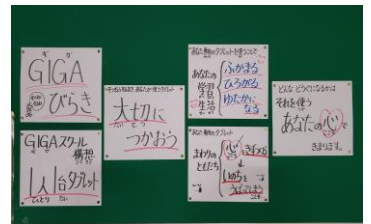 ギガ
GIGA
びらき
GIGAスクール
構想
1人1台タブレット
ひとり だい
大切に
たいせつ
つかおう
あなた専用のタブレットを使うことで
あなたの
学習
生活
ふかまる
ひろがる
ゆたかに
なる
あなた専用のタブレット
まわりの
ともだち
心
きずつける
いのちを
うばってしまう
どんな どうぐになるかは
それを使う
あなたの心
きまります。